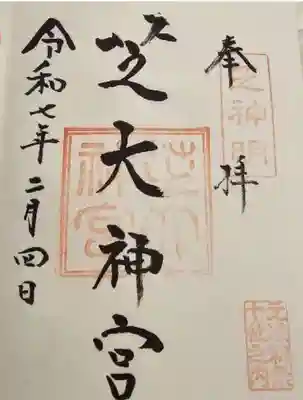 奉拝
芝大神宮
令和七年二月四日
芝神明
芝大神宮